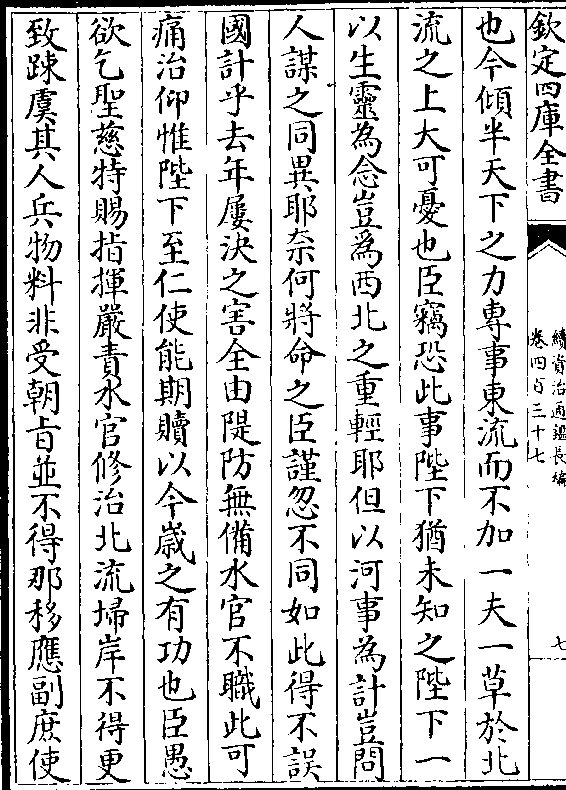 欽定四庫全書
續資治通鑑長編
卷四百三十七
七
也今傾半天下之力專事東流而不加一夫一草於北
流之上大可憂也臣竊恐此事陛下猶未知之陛下一
以生靈為念豈為西北之重輕耶但以河事為計豈問
人謀之同異耶奈何將命之臣謹忽不同如此得不誤
國計乎去年屢決之害全由隄防無備水官不職此可
痛治仰惟陛下至仁使能期贖以今歲之有功也臣愚
欲乞聖慈特賜指揮嚴責水官修治北流埽岸不得更
致踈虞其人兵物料非受朝旨並不得那移應副庶使